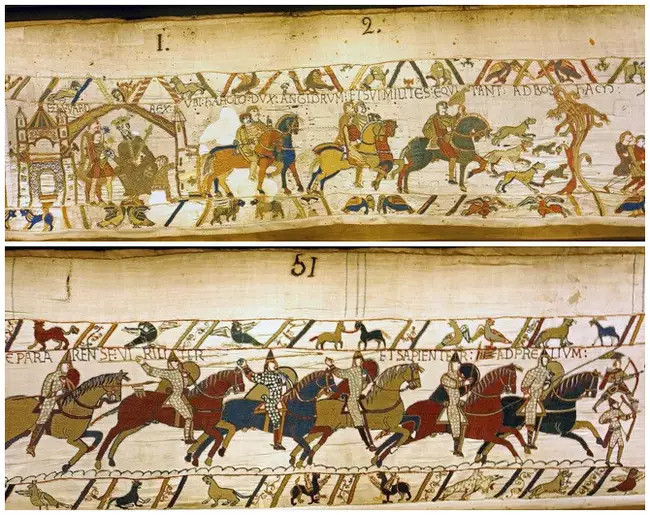 1.
2.
REX:
VBI: HAROLD DVX: ANGLORVM: ET SVI MILITES: EQVI TANT: AD BOS HAM:
51
EPARA REN SE VI RILITER ET SAPIENTER: AD PRELIVM: